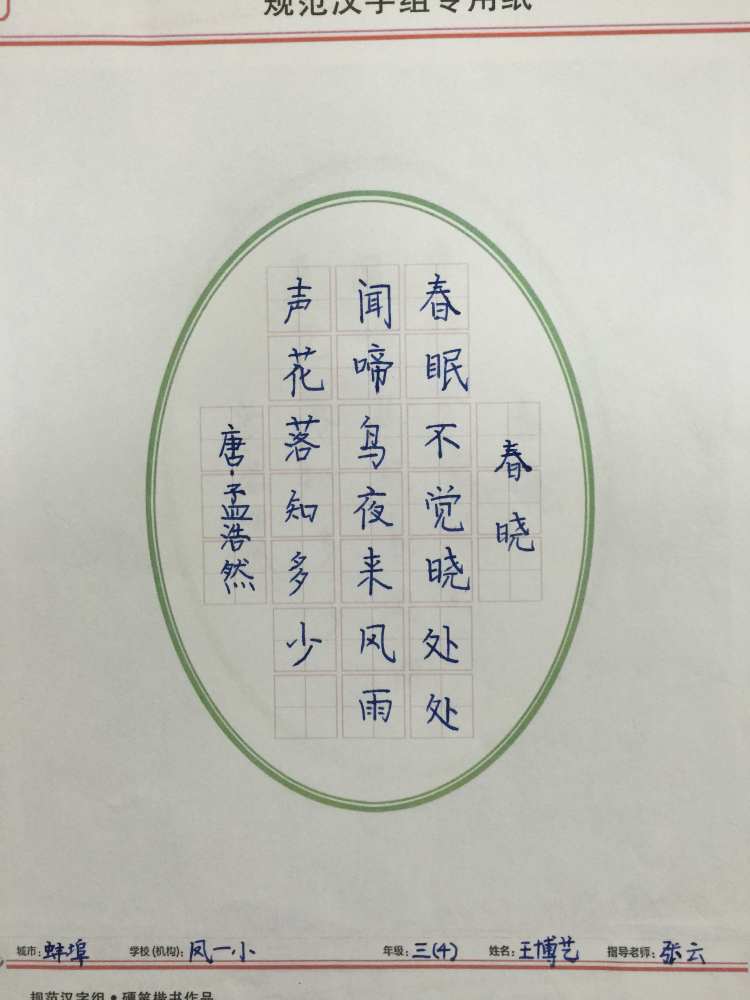 规范汉字组专用纸
春晓
春眠不觉晓处处
闻啼鸟夜来风雨
声花落知多少
唐·孟浩然
城市：蚌埠 学校(机构)：凤一小 年级：三(4) 姓名：王博艺 指导老师：张云
规范汉字组·硬笔楷书作品